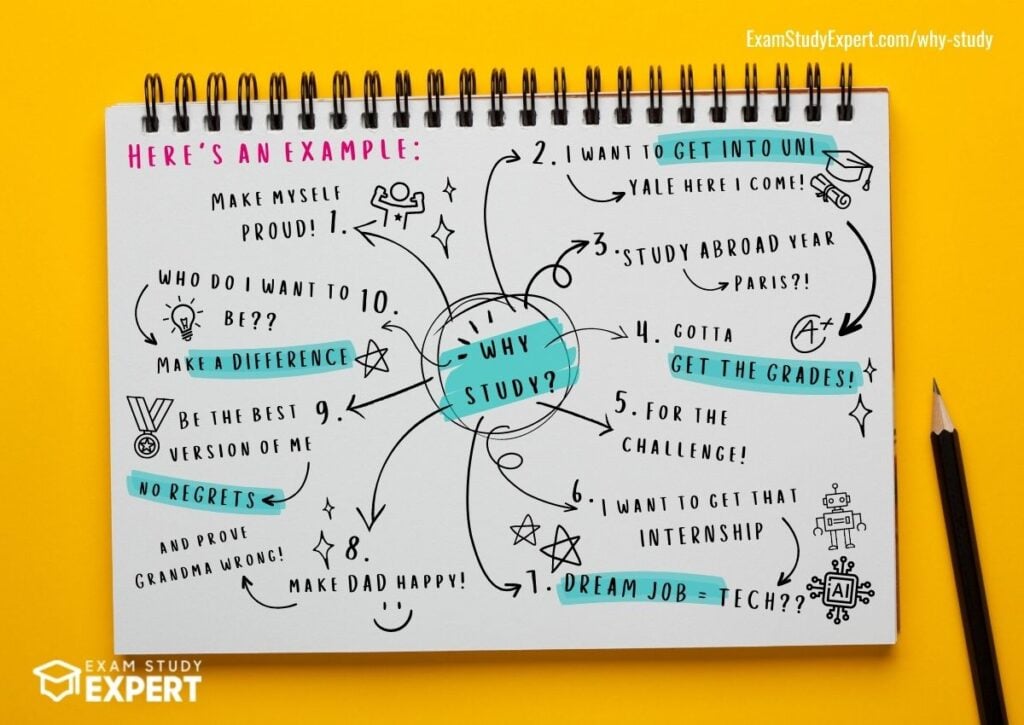 ExamStudyExpert.com/why-study
HERE'S AN EXAMPLE:
MAKE MYSELF
PROUD! 1.
2. I WANT TO GET INTO UNI
YALE HERE I COME!
3. STUDY ABROAD YEAR
PARIS?!
A+
4. GOTTA
GET THE GRADES!
5. FOR THE
CHALLENGE!
6. I WANT TO GET THAT
INTERNSHIP
7. DREAM JOB = TECH??
AI
8.
MAKE DAD HAPPY!
AND PROVE
GRANDMA WRONG!
BE THE BEST 9.
VERSION OF ME
NO REGRETS
WHO DO I WANT TO 10.
BE??
MAKE A DIFFERENCE
WHY
STUDY?
EXAM STUDY
EXPERT